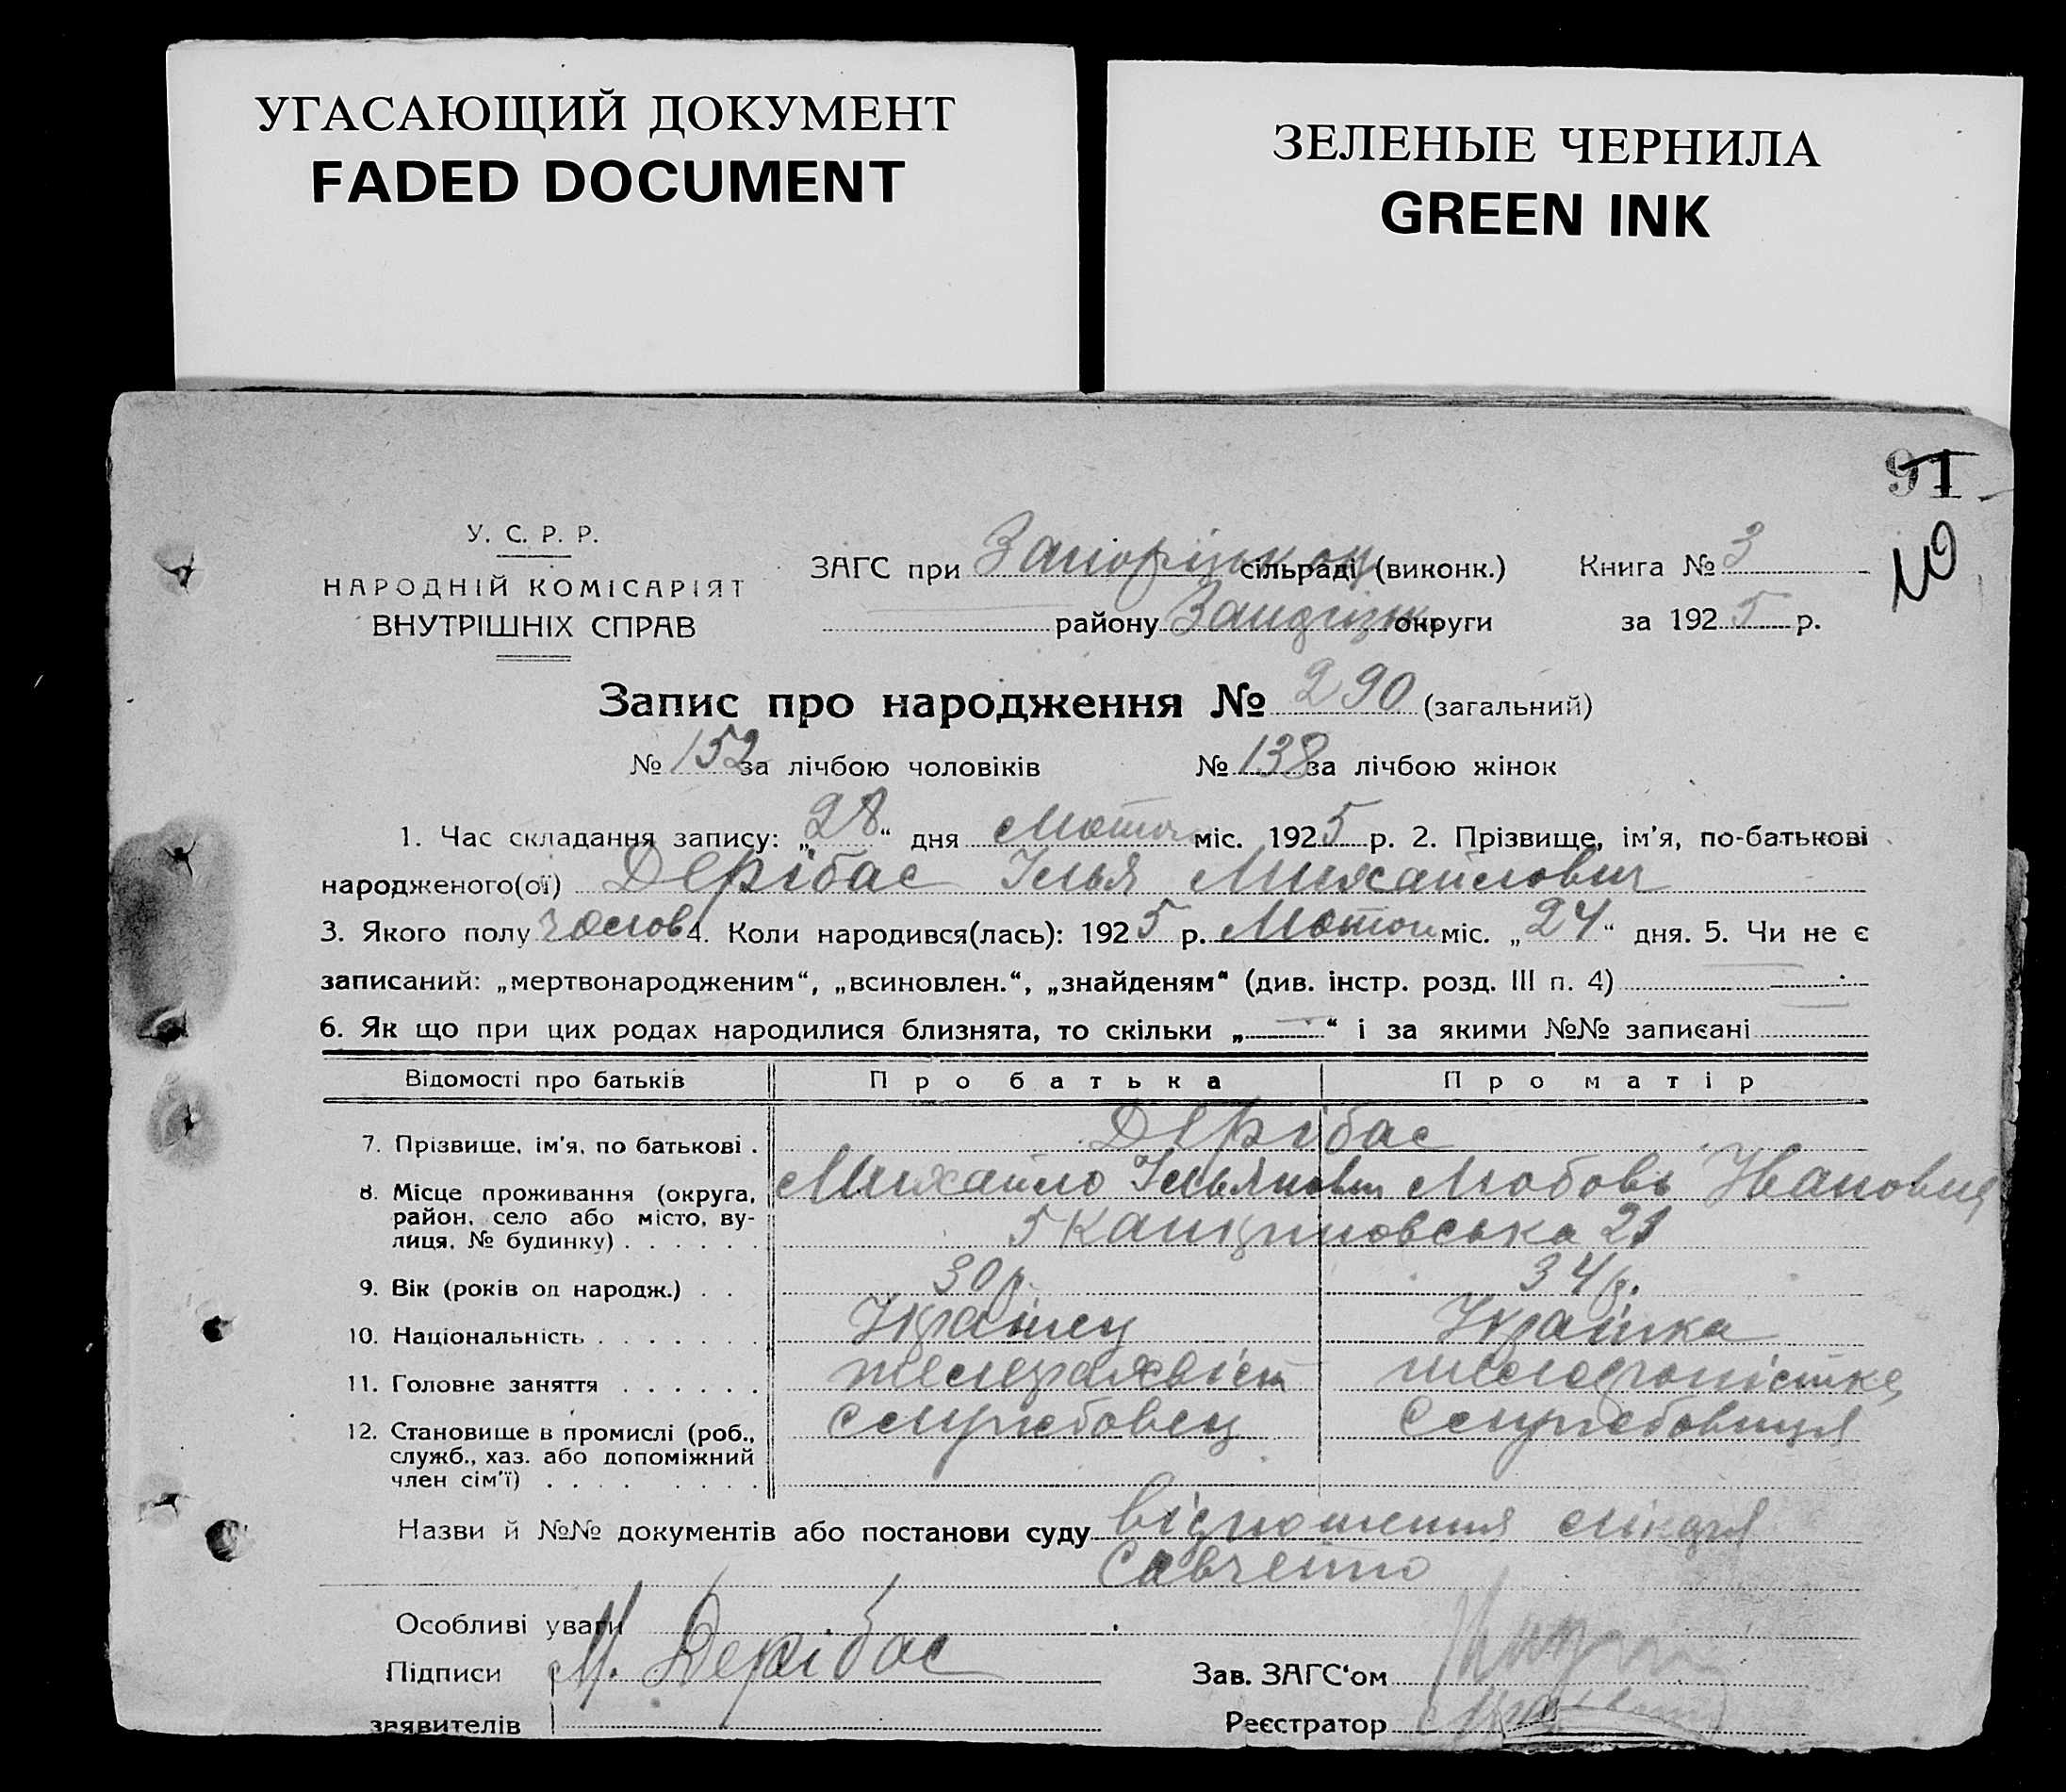 УГАСАЮЩИЙ ДОКУМЕНТ
FADED DOCUMENT
ЗЕЛЕНЫЕ ЧЕРНИЛА
GREEN INK
91
У. С. Р. Р.
НАРОДНІЙ КОМІСАРІЯТ
ВНУТРІШНІХ СПРАВ
ЗАГС при сільраді (виконк.) Книга № 3
району округи за 1925 р.
Запис про народження № 290 (загальний)
№ 152 за лічбою чоловіків № 138 за лічбою жінок
1. Час складання запису: „28“ дня міс. 1925 р. 2. Прізвище, ім'я, по-батькові
народженого(ої) Дерібас Ілья Михайлович
3. Якого полу чолов 4. Коли народився(лась): 1925 р. міс. „24“ дня. 5. Чи не є
записаний: „мертвонародженим“, „всиновлен.“, „знайденям“ (див. інстр. розд. III п. 4)
6. Як що при цих родах народилися близнята, то скільки „—“ і за якими №№ записані
Відомості про батьків Про батька Про матір
7. Прізвище, ім'я, по батькові . Дерібас
8. Місце проживання (округа, Михайло Ільянович Любовь Ивановна
район, село або місто, ву-
лиця, № будинку) . . . . . . 21
9. Вік (років од народж.) . . 30 р. 34 р.
10. Національність . . . . . . . Українец Українка
11. Головне заняття . . . . . . телеграхвіст телефоністка
12. Становище в промислі (роб., служ., службовец службовиця
служб., хаз. або допоміжний
член сім'ї) . . . . . . . .
Назви й №№ документів або постанови суду відношення лікаря
Савченко
Особливі уваги
Підписи М. Дерібас Зав. ЗАГС'ом
заявителів Реєстратор